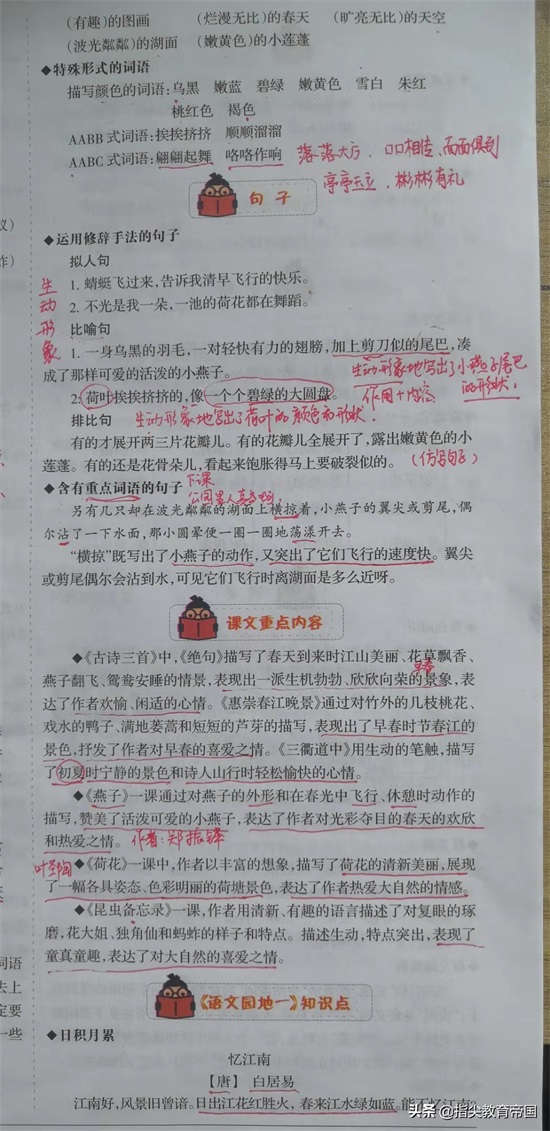 (有趣)的图画　(烂漫无比)的春天　(旷亮无比)的天空
(波光粼粼)的湖面　(嫩黄色)的小莲蓬
◆特殊形式的词语
描写颜色的词语:乌黑　嫩蓝　碧绿　嫩黄色　雪白　朱红
桃红色　褐色
AABB 式词语:挨挨挤挤　顺顺溜溜
AABC 式词语:翩翩起舞　咯咯作响　落落大方、口口相传、面面俱到
亭亭玉立、彬彬有礼
句子
◆运用修辞手法的句子
拟人句
生动形象
1. 蜻蜓飞过来,告诉我清早飞行的快乐。
2. 不光是我一朵,一池的荷花都在舞蹈。
比喻句
1. 一身乌黑的羽毛,一对轻快有力的翅膀,加上剪刀似的尾巴,凑
成了那样可爱的活泼的小燕子。
生动形象地写出了小燕子尾巴
的形状。
2. 荷叶挨挨挤挤的,像一个个碧绿的大圆盘。
作用+内容
排比句　生动形象地写出了荷叶的颜色和形状。
有的才展开两三片花瓣儿。有的花瓣儿全展开了,露出嫩黄色的小
莲蓬。有的还是花骨朵儿,看起来饱胀得马上要破裂似的。(仿写句子)
◆含有重点词语的句子　下课
公园里人真多啊
另有几只却在波光粼粼的湖面上横掠着,小燕子的翼尖或剪尾,偶
尔沾了一下水面,那小圆晕便一圈一圈地荡漾开去。
“横掠”既写出了小燕子的动作,又突出了它们飞行的速度快。翼尖
或剪尾偶尔会沾到水,可见它们飞行时离湖面是多么近呀。
课文重点内容
◆《古诗三首》中,《绝句》描写了春天到来时江山美丽、花草飘香、
燕子翻飞、鸳鸯安睡的情景,表现出一派生机勃勃、欣欣向荣的景象,表
早春
达了作者欢愉、闲适的心情。《惠崇春江晚景》通过对竹外的几枝桃花、
戏水的鸭子、满地蒌蒿和短短的芦芽的描写,表现出了早春时节春江的
景色,抒发了作者对早春的喜爱之情。《三衢道中》用生动的笔触,描写
了初夏时宁静的景色和诗人山行时轻松愉快的心情。
◆《燕子》一课通过对燕子的外形和在春光中飞行、休憩时动作的
描写,赞美了活泼可爱的小燕子,表达了作者对光彩夺目的春天的欢欣
和热爱之情。作者:郑振铎
叶圣陶
◆《荷花》一课中,作者以丰富的想象,描写了荷花的清新美丽,展现
了一幅各具姿态、色彩明丽的荷塘景色,表达了作者热爱大自然的情感。
◆《昆虫备忘录》一课,作者用清新、有趣的语言描述了对复眼的琢
磨,花大姐、独角仙和蚂蚱的样子和特点。描述生动,特点突出,表现了
童真童趣,表达了对大自然的喜爱之情。
《语文园地一》知识点
◆日积月累
忆江南
【唐】　白居易
江南好,风景旧曾谙。日出江花红胜火,春来江水绿如蓝。能不忆江南?
议)
作)
词语
法上
定要
一些
头条 @指尖教育帝国